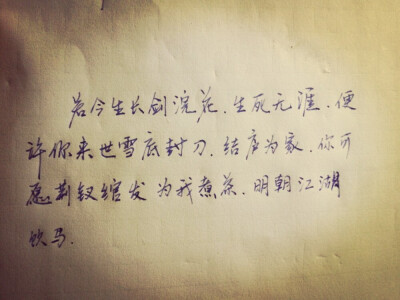 若今生长剑浣花.生死无涯.便
许你来世雪底封刀.结庐为家.你可
愿荆钗绾发 为我煮茶.明朝江湖
饮马.